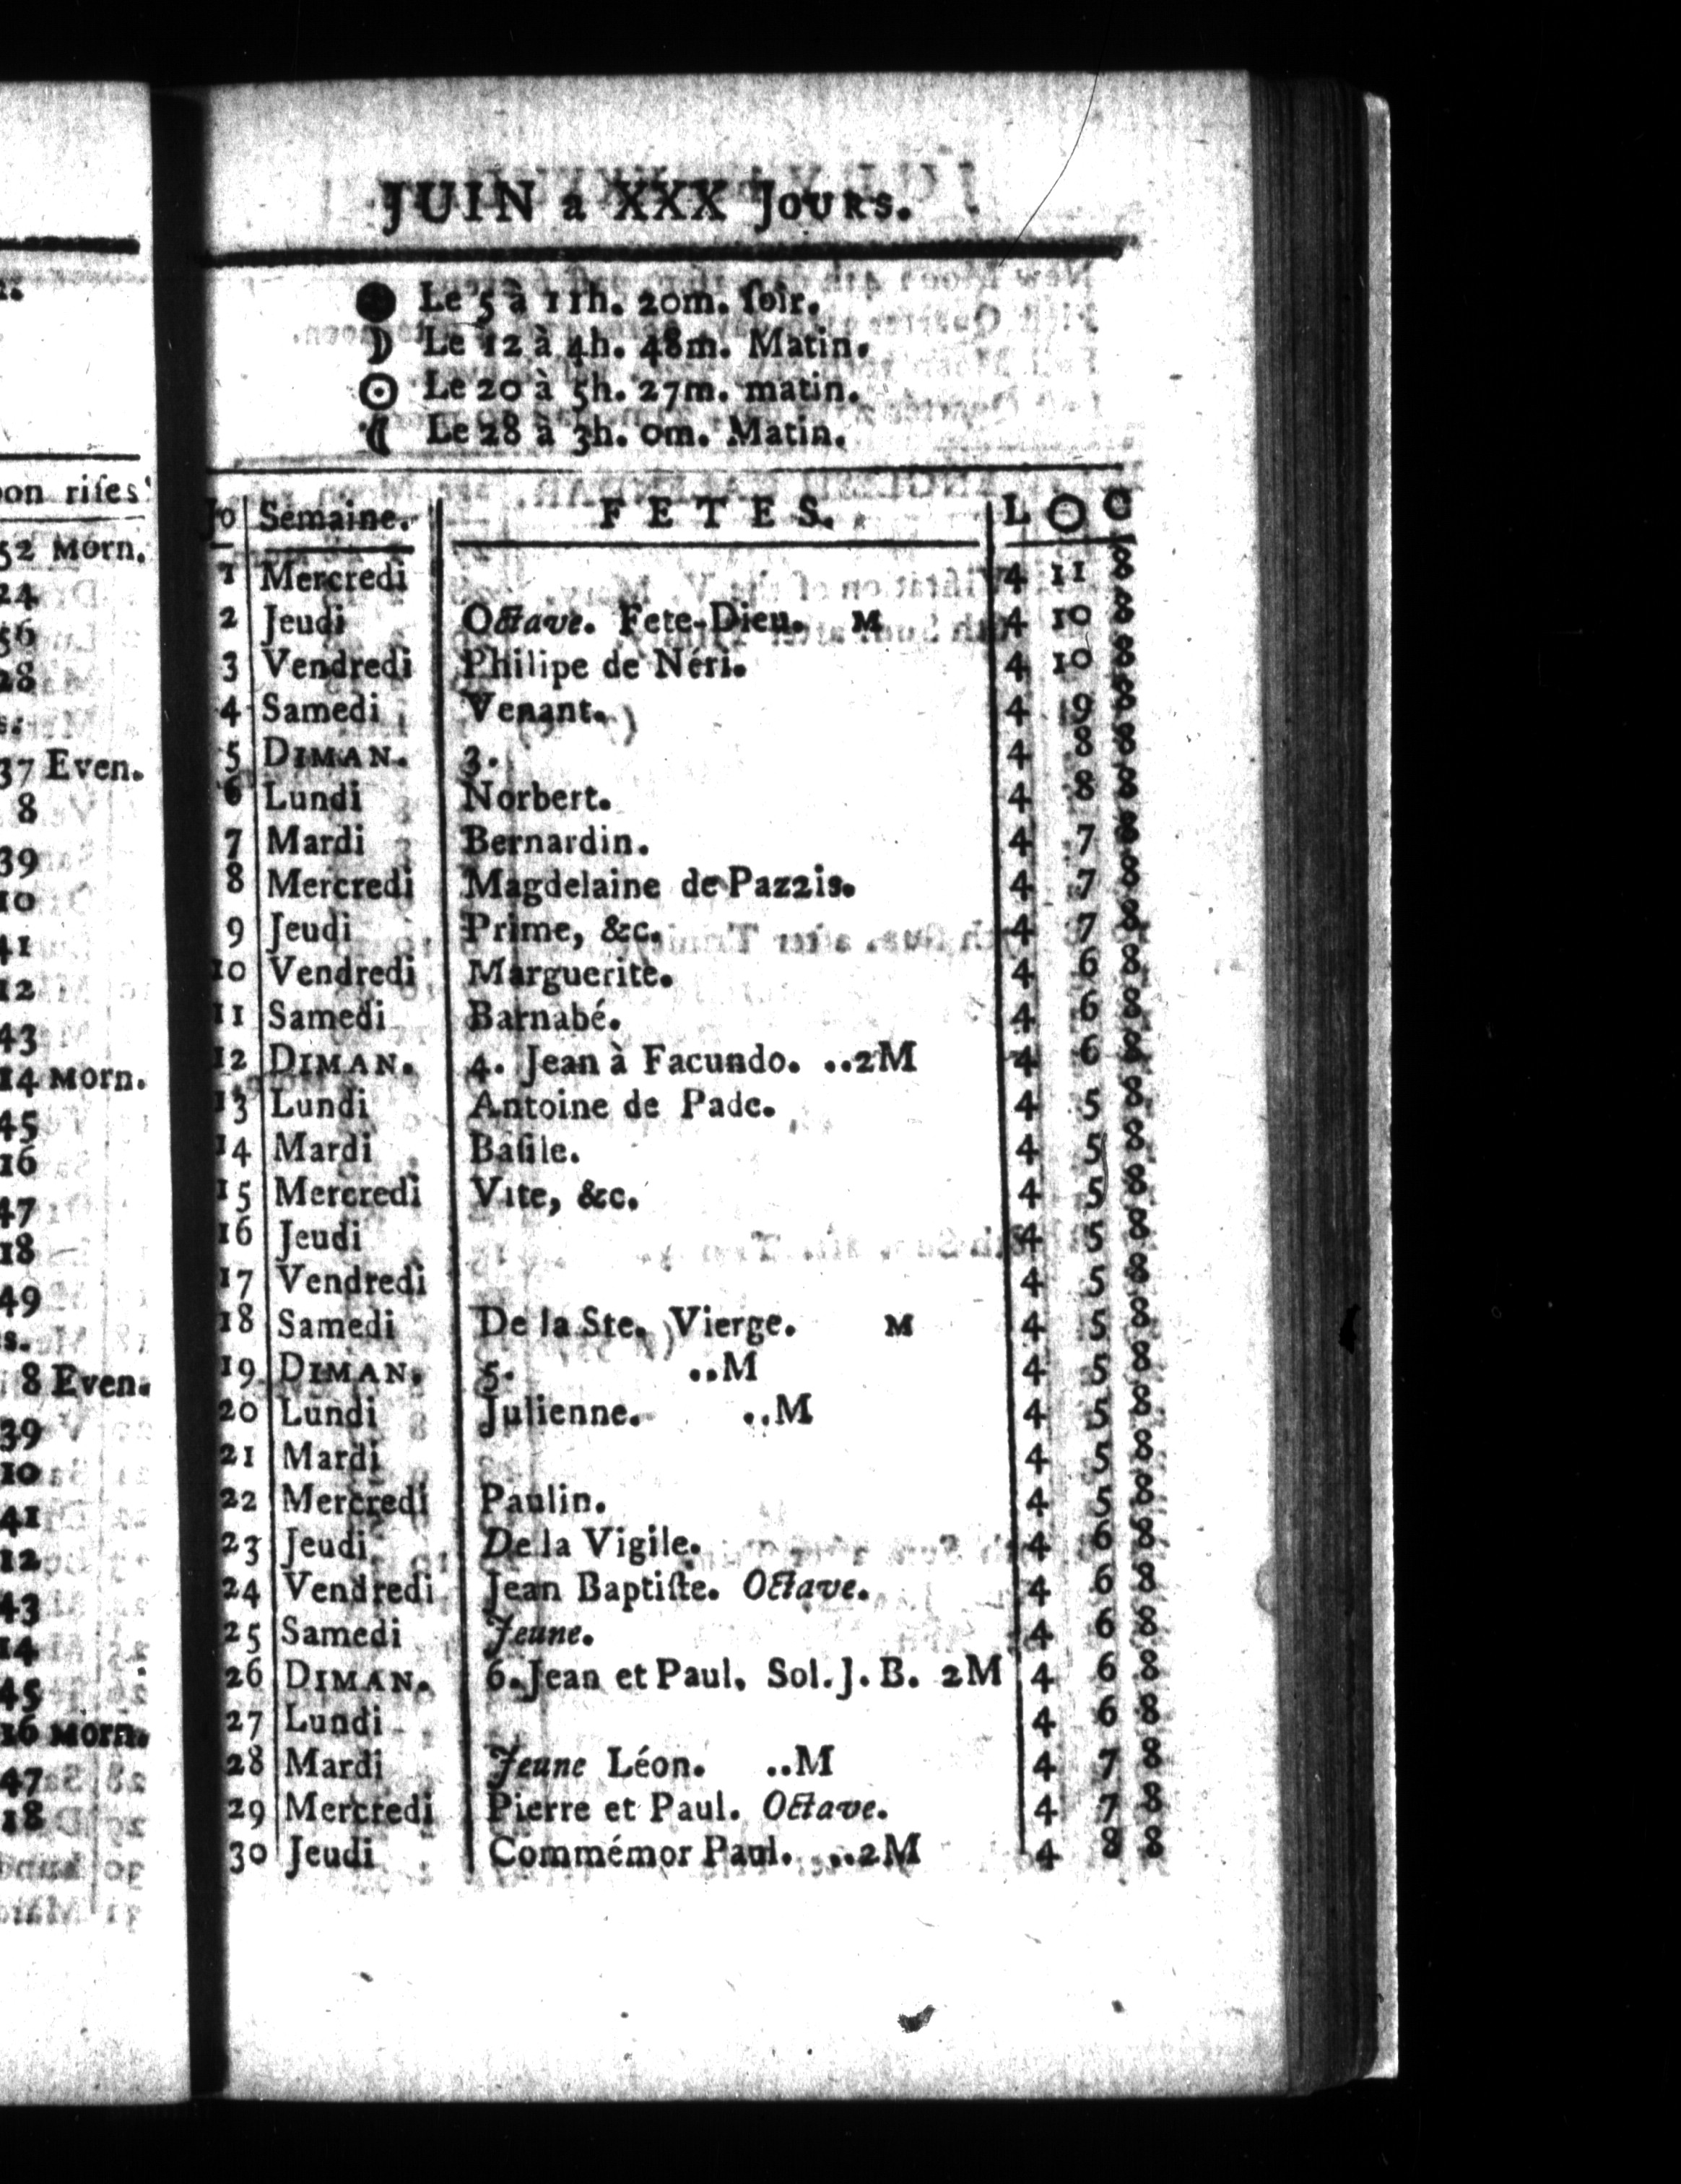 JUIN a XXX Jours.
● Le 5 à 11h. 20m. ſoir.
☽ Le 12 à 4h. 48m. Matin.
☉ Le 20 à 5h. 27m. matin.
☾ Le 28 à 3h. 0m. Matin.
Jo Semaine. FETES. L O C
1 Mercredi 4 11 8
2 Jeudi Octave. Fete-Dieu. M 4 10 8
3 Vendredi Philipe de Néri. 4 10 8
4 Samedi Venant. 4 9 8
5 DIMAN. 3. 4 8 8
6 Lundi Norbert. 4 8 8
7 Mardi Bernardin. 4 7 8
8 Mercredi Magdelaine de Pazzis. 4 7 8
9 Jeudi Prime, &c. 4 7 8
10 Vendredi Marguerite. 4 6 8
11 Samedi Barnabé. 4 6 8
12 DIMAN. 4. Jean à Facundo. ..2M 4 6 8
13 Lundi Antoine de Pade. 4 5 8
14 Mardi Baſile. 4 5 8
15 Mercredi Vite, &c. 4 5 8
16 Jeudi 4 5 8
17 Vendredi 4 5 8
18 Samedi De la Ste. Vierge. M 4 5 8
19 DIMAN. 5. ..M 4 5 8
20 Lundi Julienne. ..M 4 5 8
21 Mardi 4 5 8
22 Mercredi Paulin. 4 5 8
23 Jeudi De la Vigile. 4 6 8
24 Vendredi Jean Baptiſte. Octave. 4 6 8
25 Samedi Jeune. 4 6 8
26 DIMAN. 6. Jean et Paul. Sol. J. B. 2M 4 6 8
27 Lundi 4 6 8
28 Mardi Jeune Léon. ..M 4 7 8
29 Mercredi Pierre et Paul. Octave. 4 7 8
30 Jeudi Commémor Paul. ..2M 4 8 8